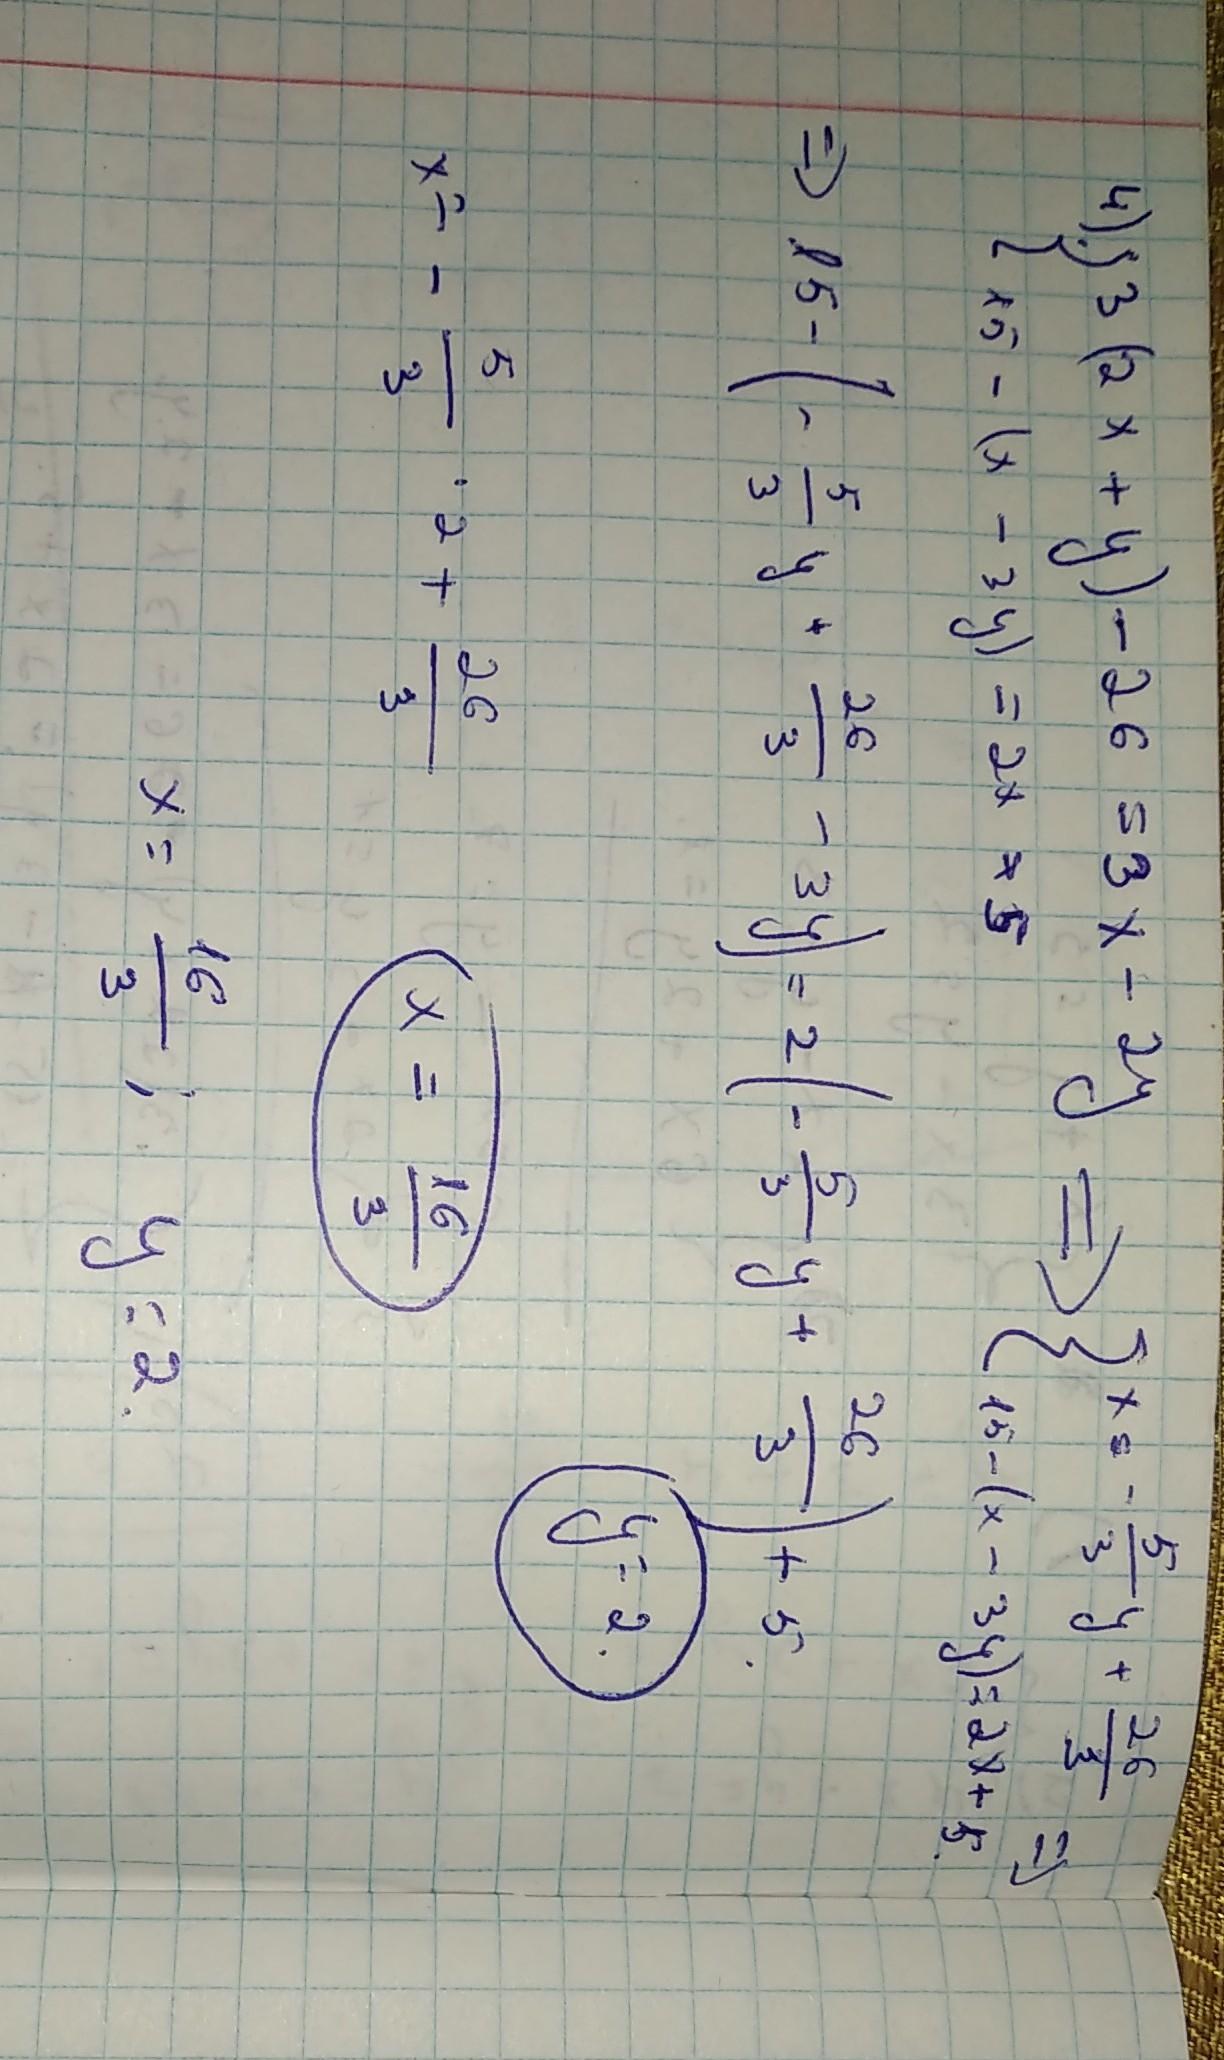 4) { 3(2x + y) - 26 = 3x - 2y => { x = -5/3 y + 26/3 =>
15 - (x - 3y) = 2x + 5 15 - (x - 3y) = 2x + 5.
=> 15 - (-5/3 y + 26/3 - 3y) = 2(-5/3 y + 26/3) + 5.
y = 2.
x = -5/3 · 2 + 26/3
x = 16/3
x = 16/3 ; y = 2.